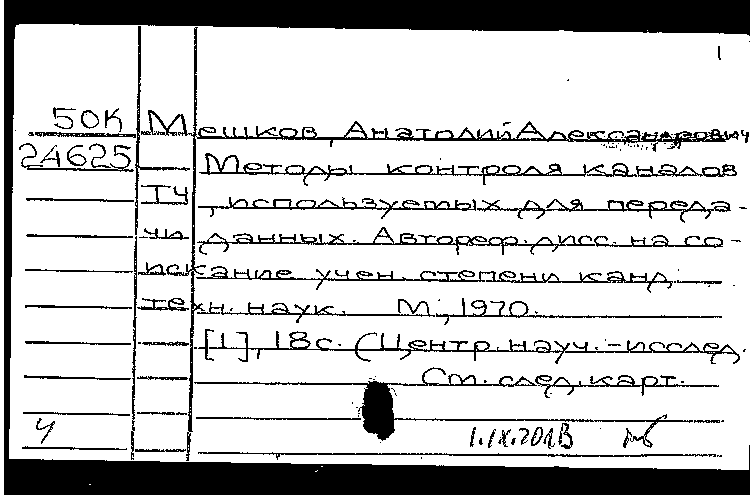 1
50К Мешков, Анатолий Александрович
24625 Методы контроля каналов
ТЧ, используемых для переда-
чи данных. Автореф. дисс. на со-
искание учен. степени канд.
техн. наук. М., 1970.
[1], 18с. (Центр. науч.-исслед.
См. след. карт.
Ч 1.IX.201В